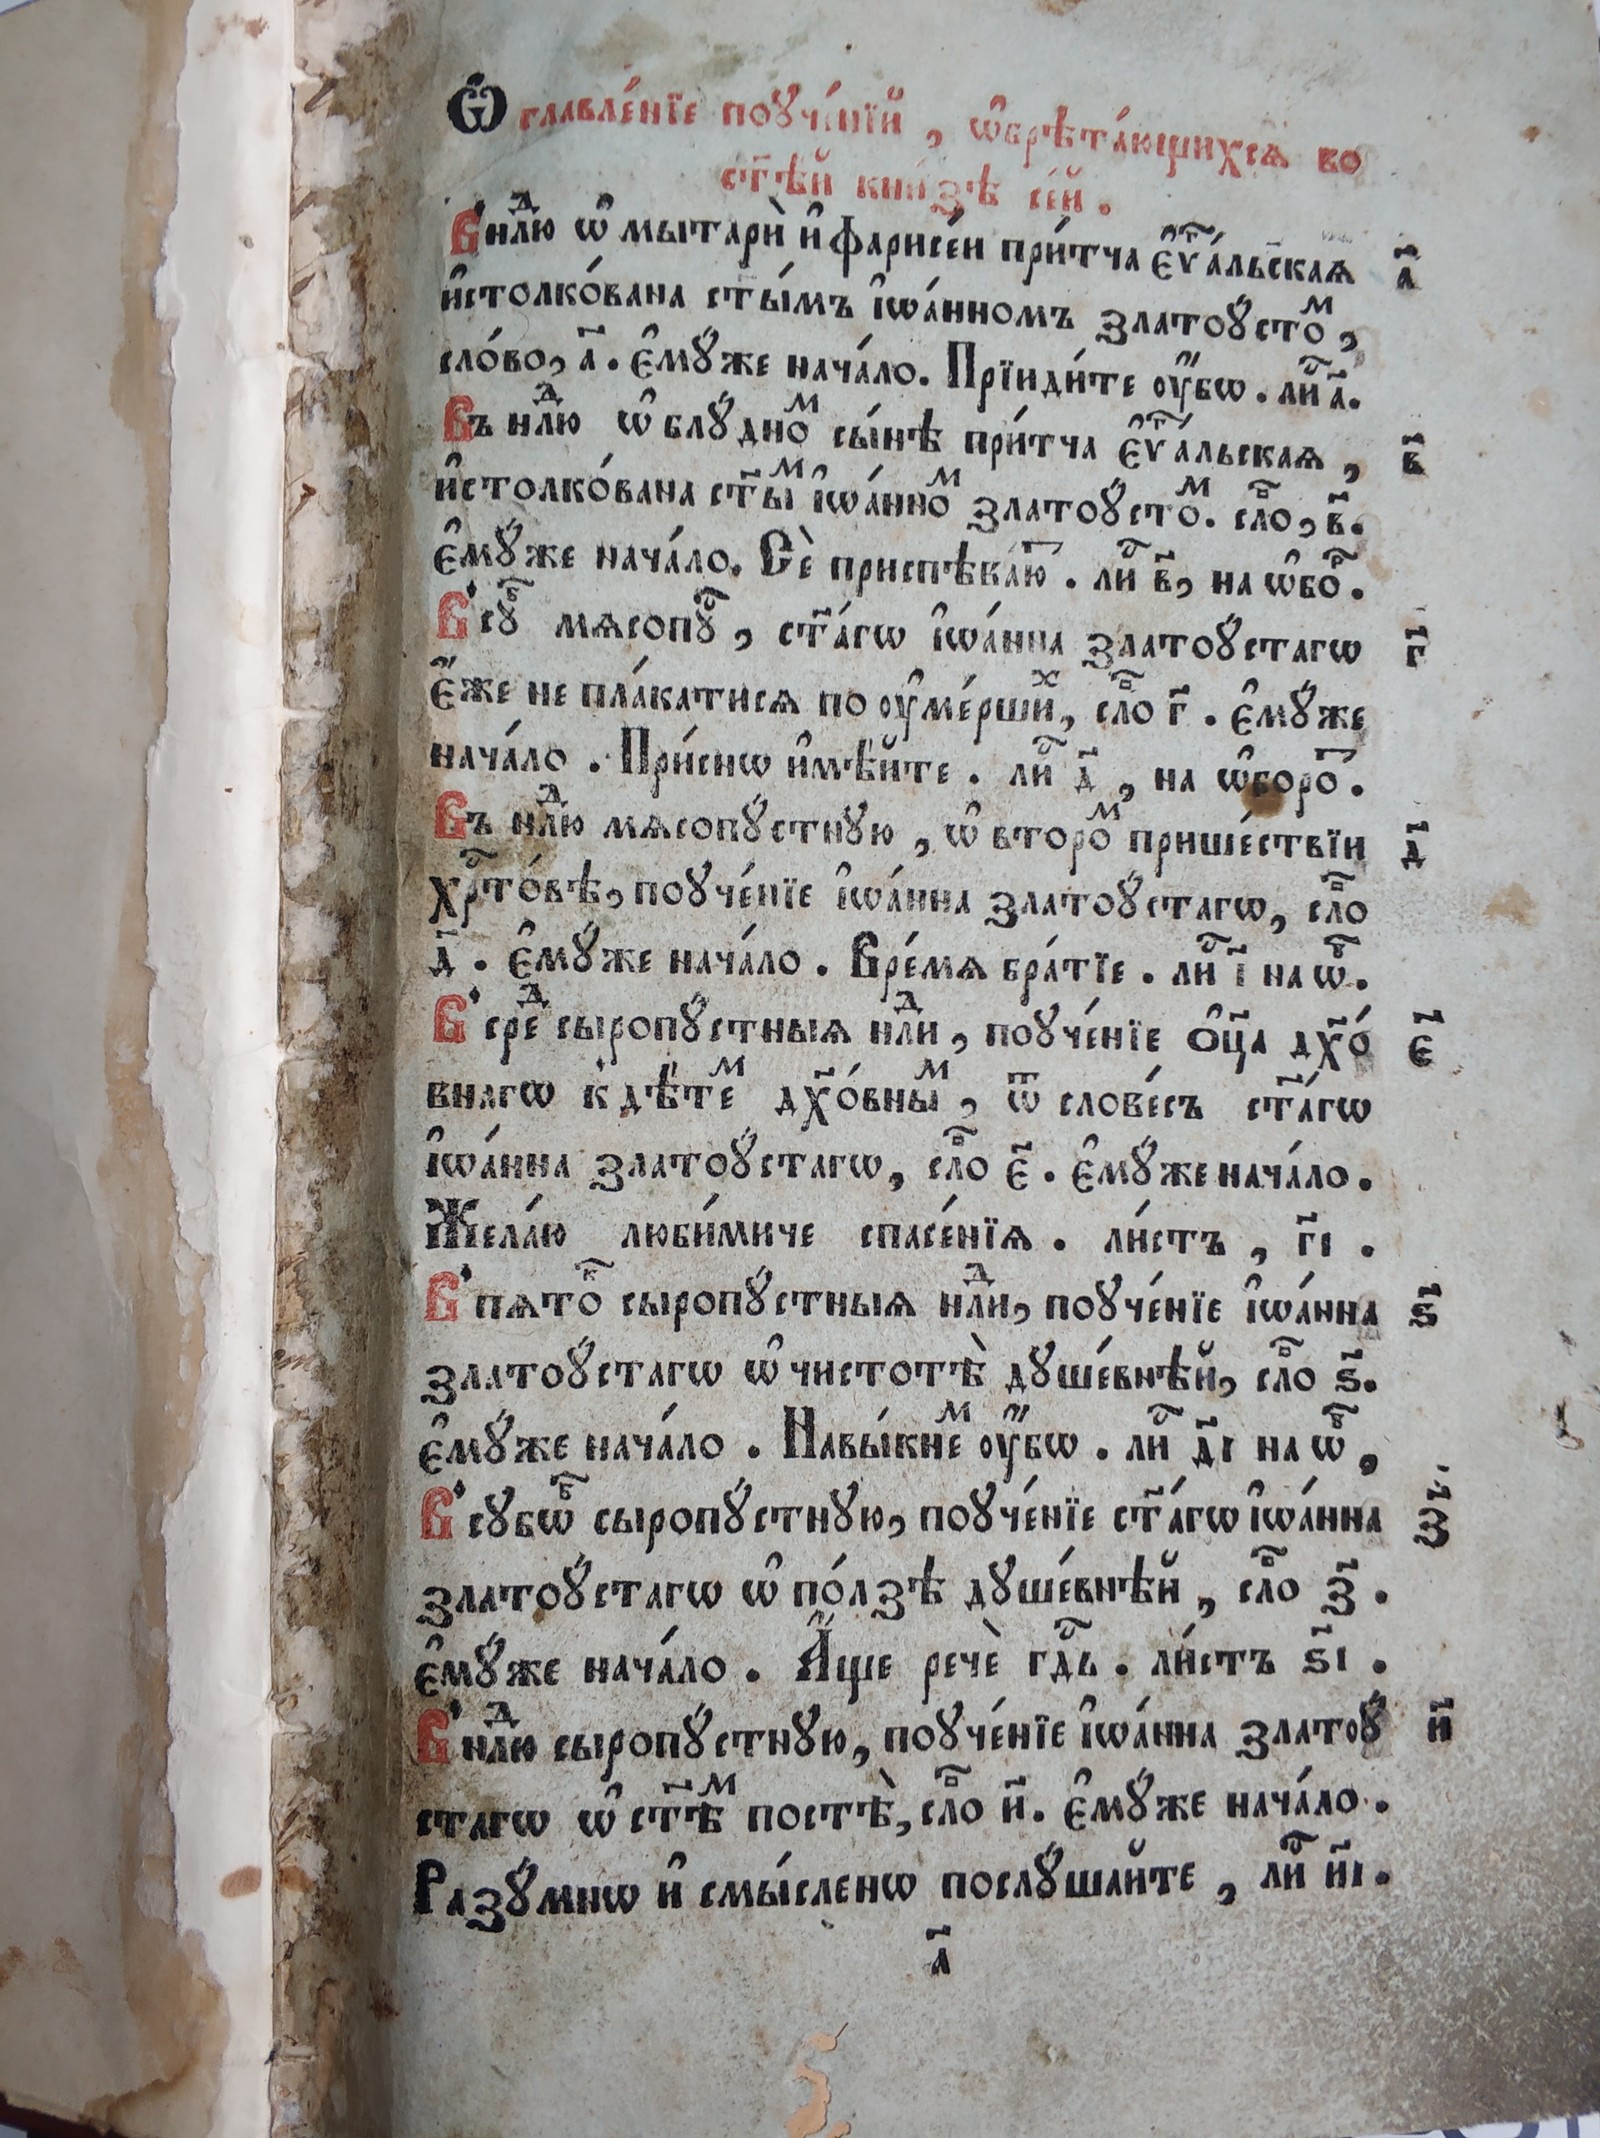 Ѡ҆главле́нїе поꙋче́нїй, ѡ҆брѣта́ющихсѧ во
ст҃ѣ́й кни́зѣ се́й.
В̾ нлⷣю ѡ҆ мытарѝ и҆ фарисе́и при́тча є҆ѵⷢ҇а́льскаѧ а҃
и҆столко́вана ст҃ы́мъ і҆ѡа́нномъ златоꙋ́стоⷨ,
сло́во, а҃. є҆мꙋ́же нача́ло. Прїиди́те ᲂу҆̀бѡ. лиⷭ҇ а҃.
Въ нлⷣю ѡ҆ блꙋ́дноⷨ сы́нѣ при́тча є҆ѵⷢ҇а́льскаѧ, в҃
и҆столко́вана ст҃ыⷨ і҆ѡа́нноⷨ златоꙋ́стоⷨ. сло̑, в҃.
є҆мꙋ́же нача́ло. Сѐ приспѣваⷮю. лиⷭ҇ в҃, на ѡ҆боⷬ҇.
В̾ сꙋⷠ҇ мѧсопꙋⷭ҇, ст҃а́гѡ і҆ѡа́нна златоꙋ́стагѡ г҃
є҆́же не пла́катисѧ по ᲂу҆ме́ршиⷯ, сло̑ г҃. є҆мꙋ́же
нача́ло. При́снѡ и҆мѣ́йте. лиⷭ҇ д҃, на ѡ҆бороⷮ.
Въ нлⷣю мѧсопꙋ́стнꙋю, ѡ҆ второⷨ прише́ствїи д҃
хрⷭ҇то́вѣ, поꙋче́нїе і҆ѡа́нна златоꙋ́стагѡ, сло̑
д҃. є҆мꙋ́же нача́ло. Вре́мѧ бра́тїе. лиⷭ҇ і҃ на ѡ҆ⷠ҇.
В̾ среⷣ сыропꙋ́стныѧ нлⷣи, поꙋче́нїе ѻ҆ц҃а дх҃о́ є҃
внагѡ к̾ дѣ́теⷨ дх҃о́вныⷨ, ѿ слове́съ ст҃а́гѡ
і҆ѡа́нна златоꙋ́стагѡ, сло̑ є҃. є҆мꙋ́же нача́ло.
Жела́ю люби́миче спасе́нїѧ. ли́стъ, г҃і.
В̾ пѧтоⷦ҇ сыропꙋ́стныѧ нлⷣи, поꙋче́нїе і҆ѡа́нна ѕ҃
златоꙋ́стагѡ ѡ҆ чистотѣ̀ дꙋше́внѣй, сло̑ ѕ҃.
є҆мꙋ́же нача́ло. Навы́кнеⷨ ᲂу҆̀бѡ. лиⷭ҇ д҃і на ѡ҆ⷠ҇,
В̾ сꙋбѡⷮ сыропꙋ́стнꙋю, поꙋче́нїе ст҃а́гѡ і҆ѡа́нна з҃
златоꙋ́стагѡ ѡ҆ по́лзѣ дꙋше́внѣй, сло̑ з҃.
є҆мꙋ́же нача́ло. А҆́ще речѐ гдⷭ҇ь. ли́стъ ѕ҃і.
В̾ нлⷣю сыропꙋ́стнꙋю, поꙋче́нїе і҆ѡа́нна златоꙋ́ и҃
стагѡ ѡ҆ ст҃ѣⷨ постѣ̀, сло̑ и҃. є҆мꙋ́же нача́ло.
Разꙋ́мнѡ и҆ смы́сленѡ послꙋ́шайте, лиⷭ҇ и҃і.
а҃